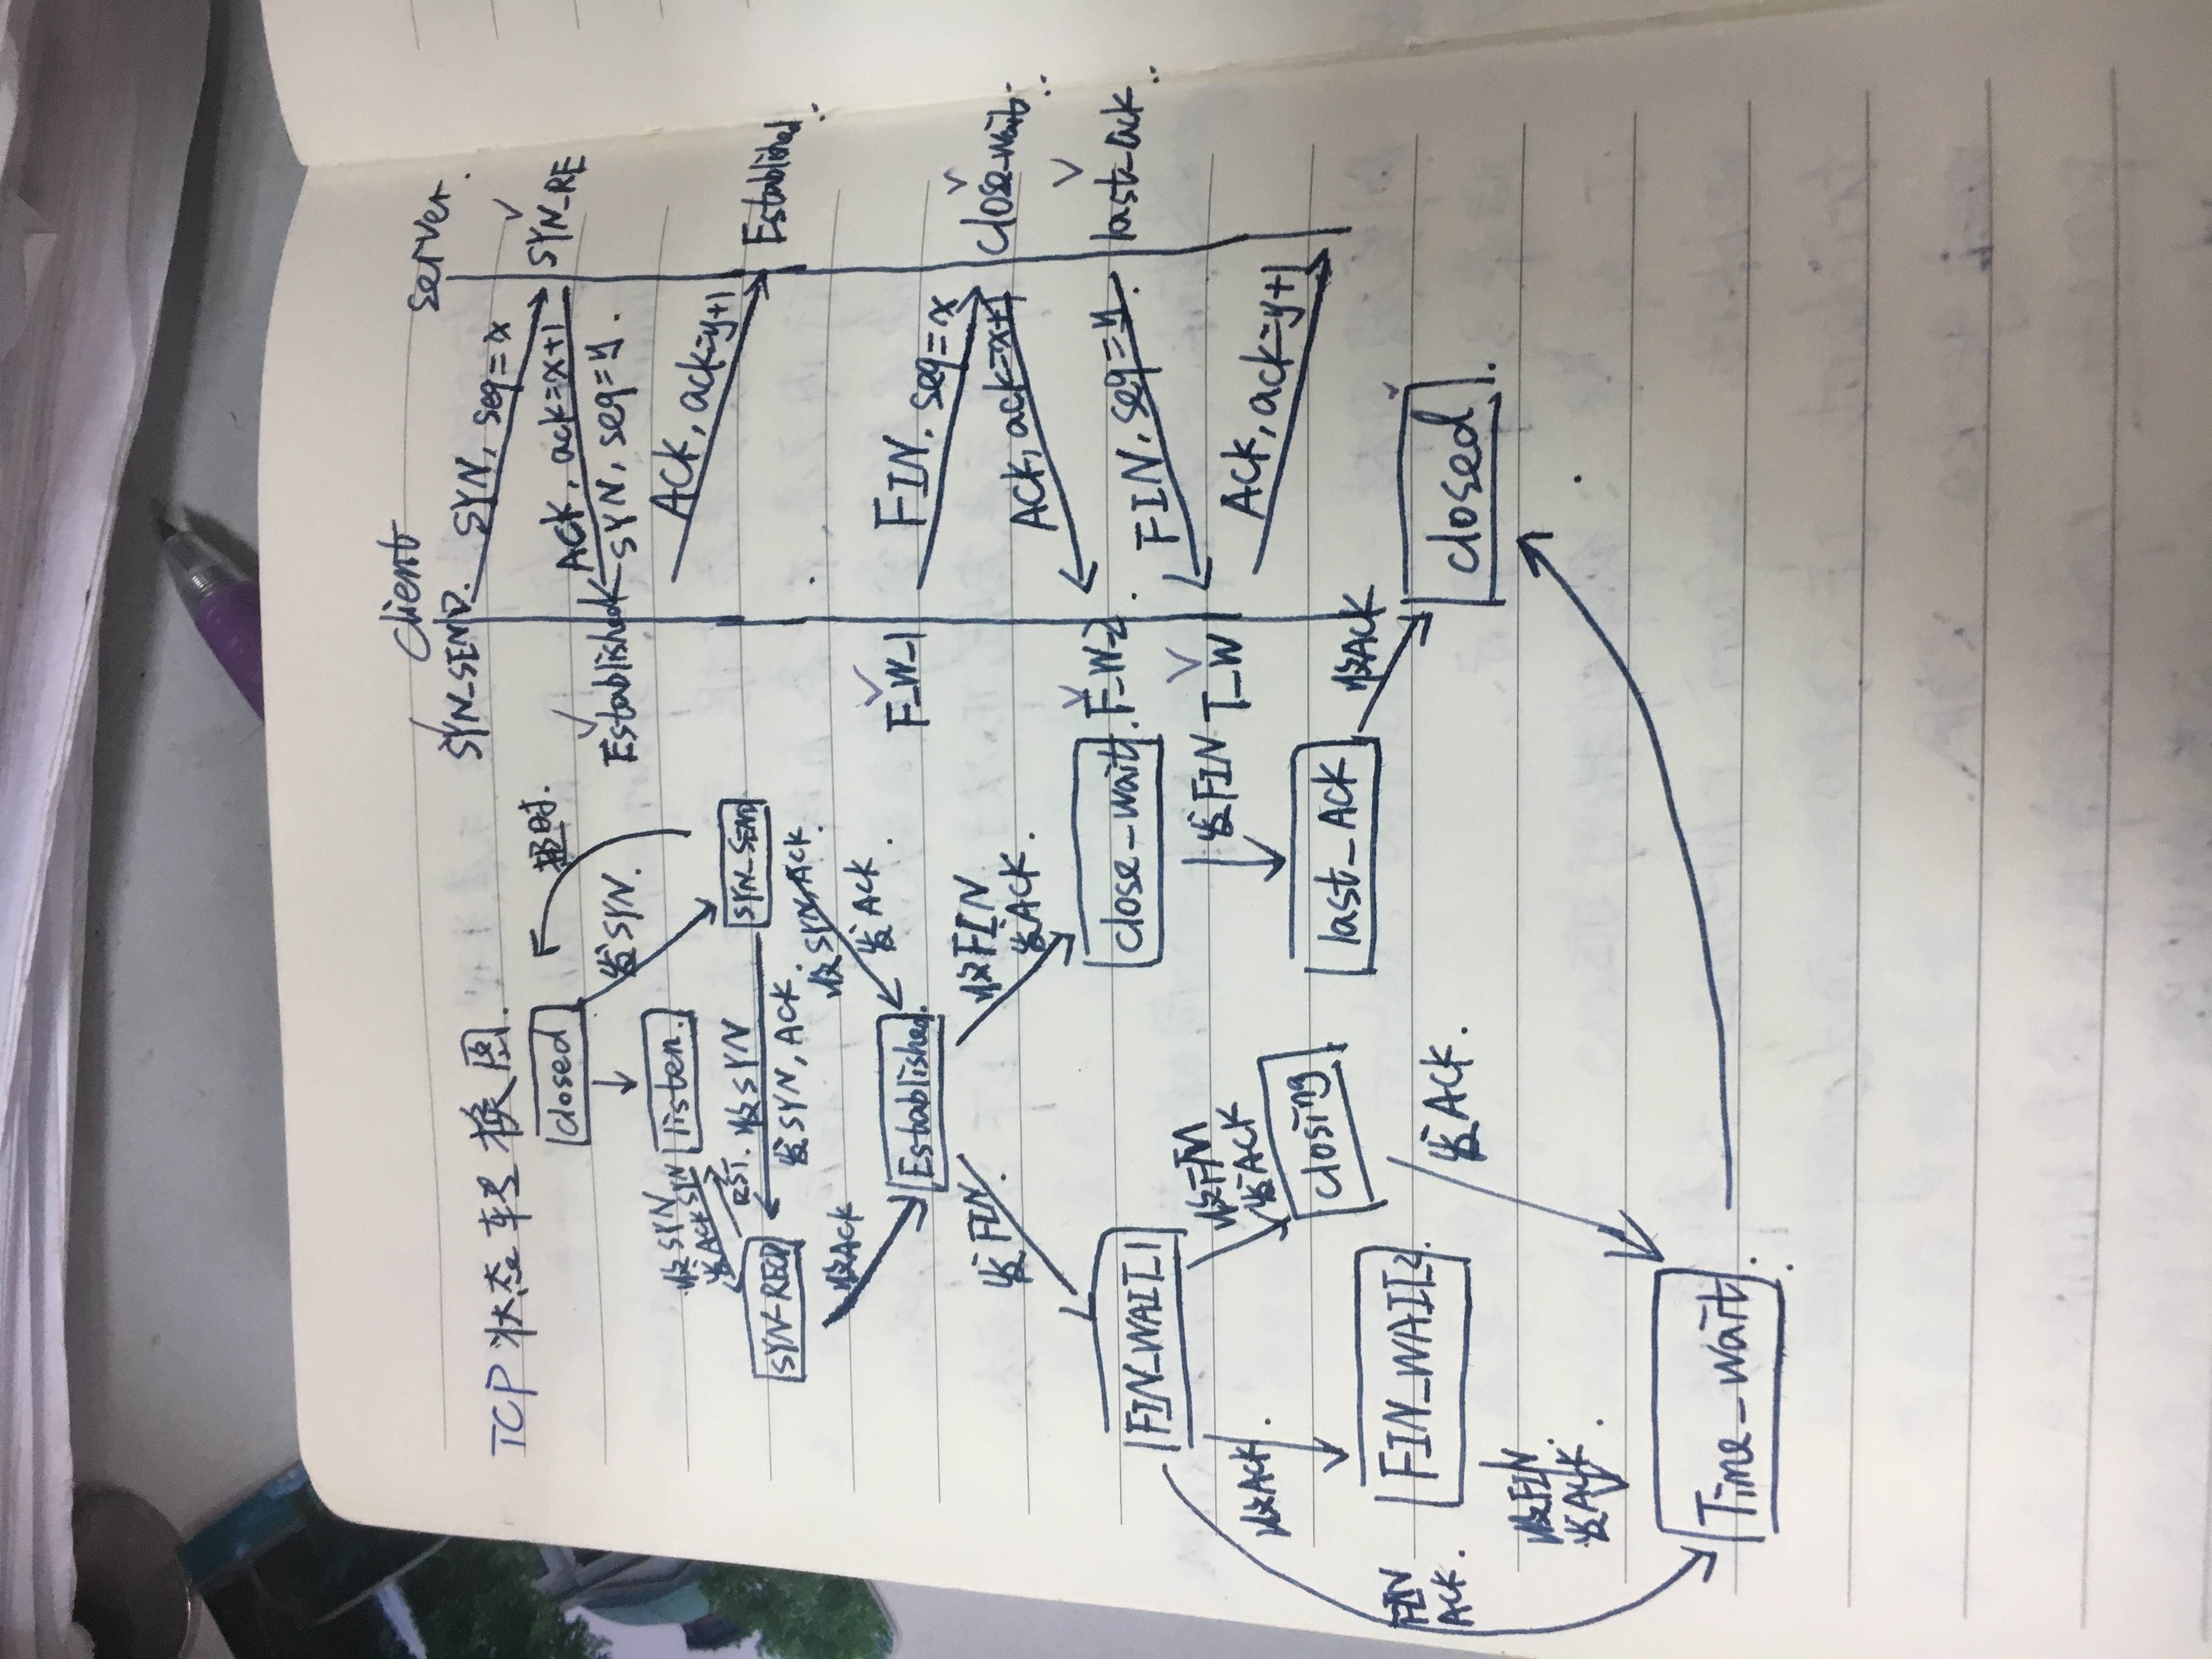 TCP 状态转换图.
closed
超时.
发SYN.
listen.
收SYN
发ACK SYN
RST.
收SYN
发SYN, ACK.
SYN-RECD
SYN_SEND
收ACK
收SYN, ACK
发ACK.
Established.
发FIN.
收FIN
发ACK.
FIN_WAIT_1
close_wait.
收ACK.
收FIN
发ACK
发FIN
closing
last_Ack
收ACK
FIN
ACK.
FIN_WAIT_2.
发ACK.
closed.
收FIN.
发ACK.
Time_wait.
client
server.
SYN_SEND.
SYN, seq=x
SYN_RE
ACK, ack=x+1
Established
SYN, seq=y.
ACK, ack=y+1
Established.
F_W_1
FIN. seq=x
close_wait.
ACK, ack=x+1
F_W_2.
last_ack
FIN, seq=y.
T_W
ACK, ack=y+1